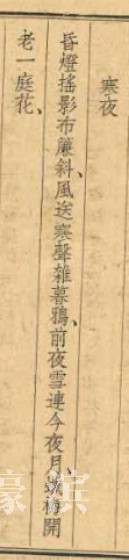 寒夜
昏燈搖影布簾斜、風送寒聲雜暮鴉、前夜雪連今夜月、梅開
老一庭花、
濠濱